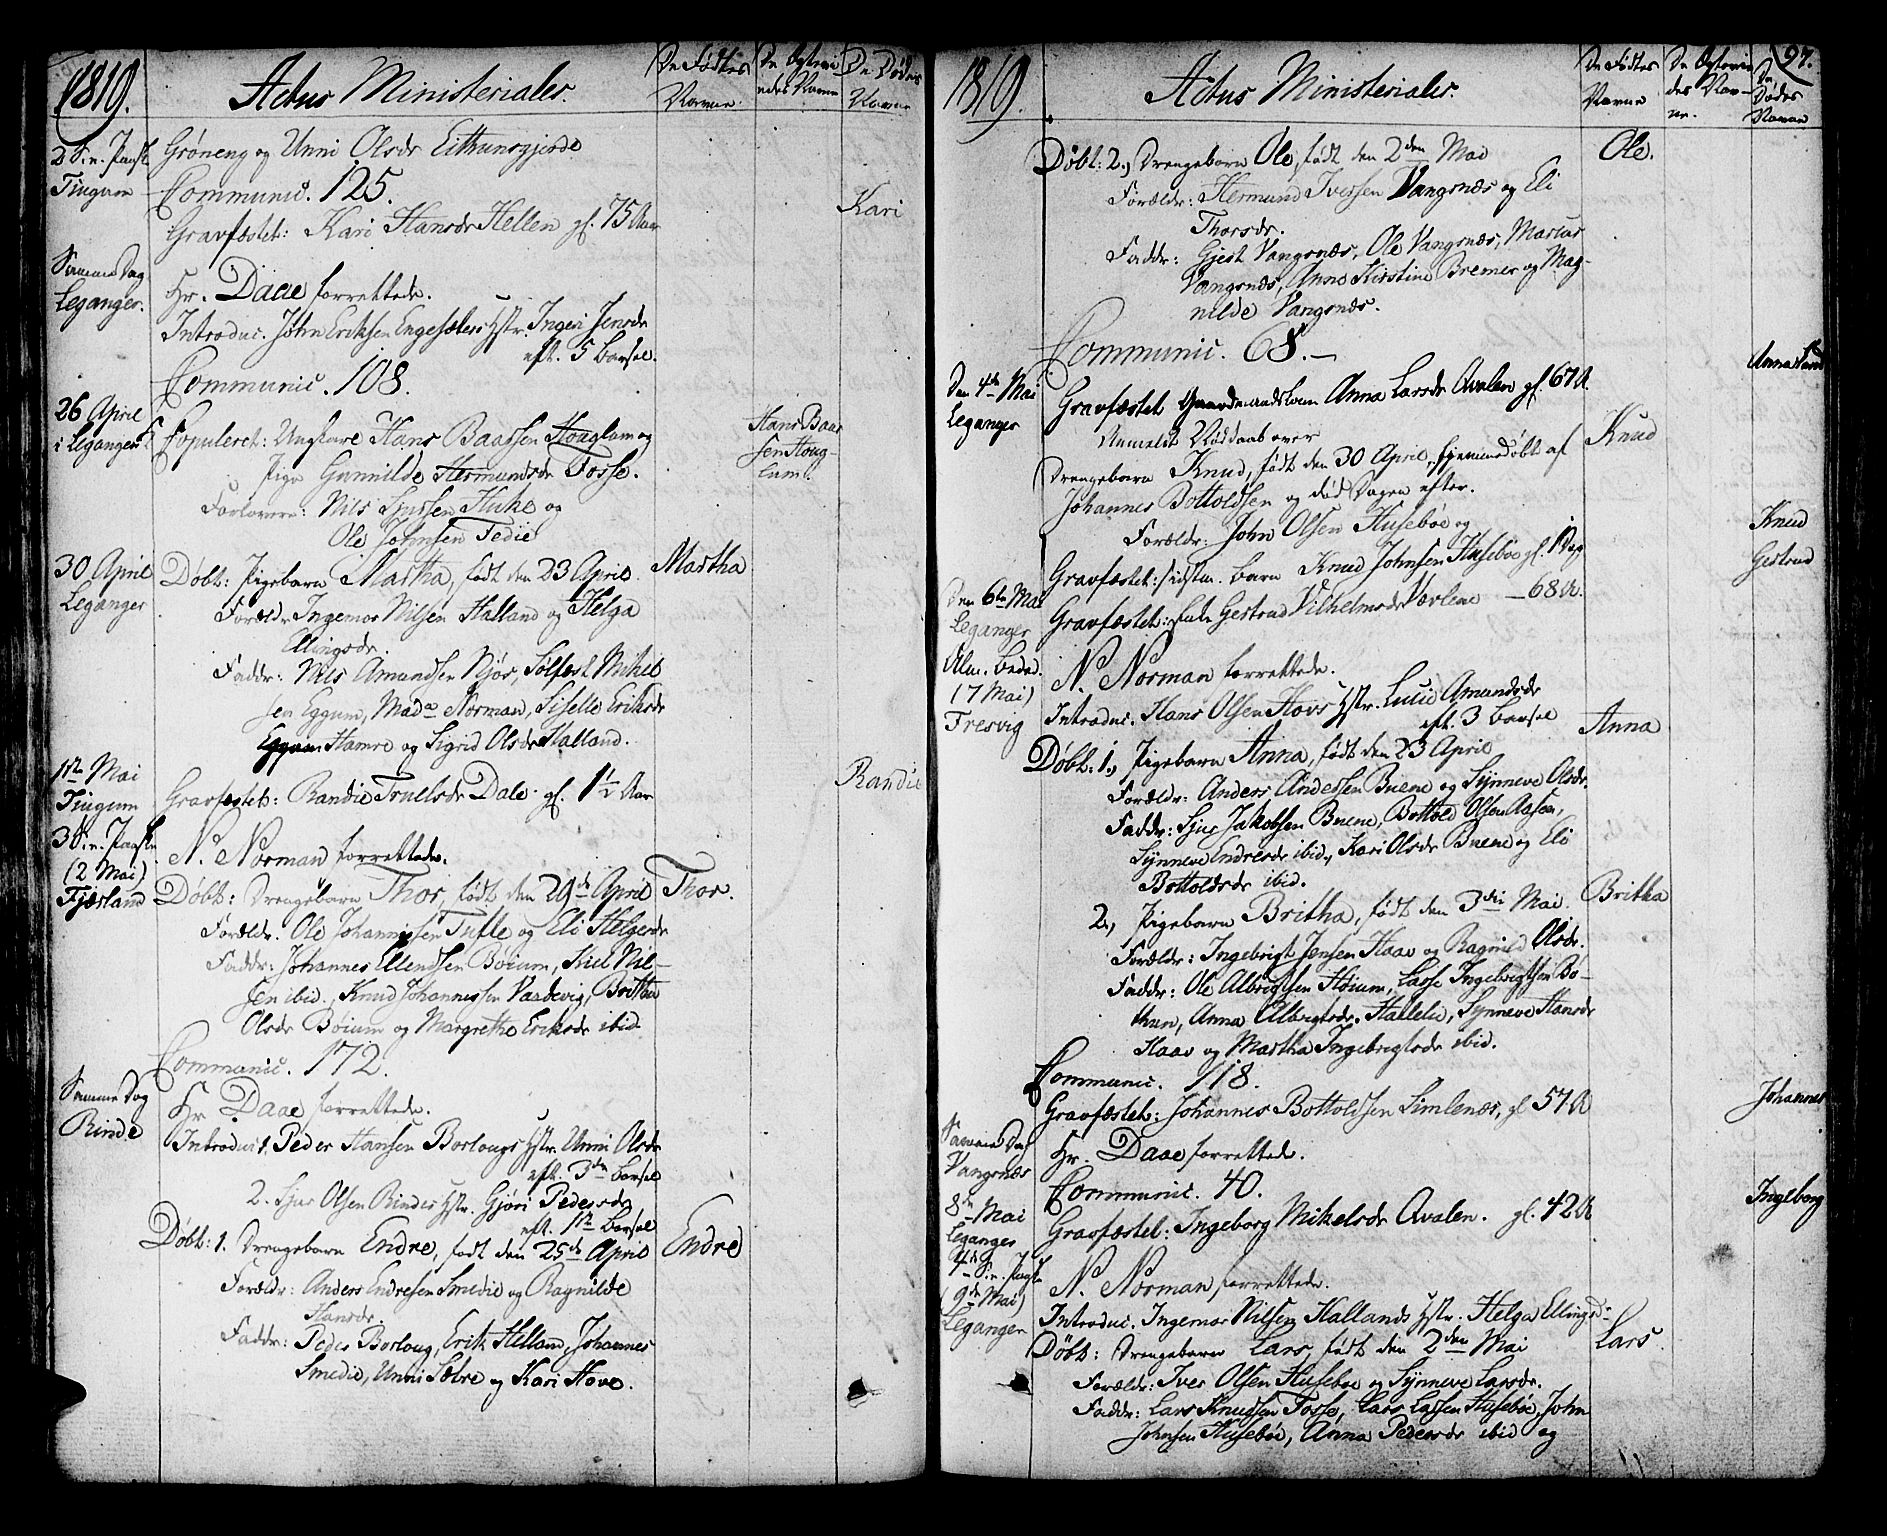 1819.
Actus Ministeriales.
De Fødtes Navne
De Ægtevi edes Navne
De Dødes Navne
2 S. e. Paaske Tingum
Grøneng og Unni Olsdr Eithunsgjerde
Communic. 125.
Gravfæstet: Kari Hansdr Hellen gl. 75 Aar
Kari
Samme Dag Leganger.
Hr. Daae forrettede.
Introduc. John Eriksen Engesæters Hstr. Ingeri Jensdr
eft. 5 Barsel.
Communic. 108.
26 April i Leganger
Copuleret: Ungkare Hans Baarsen Houglum og
Hans Baar sen Houg lum.
Pige Gunnilde Hermundsdr Fosse.
Forlovere: Nils Sjursen Huke og
Ole Johnsen Tedie
30 April Leganger
Døbt: Pigebarn Martha, født den 23 April.
Martha
Forældr. Ingemor Nilsen Halland og Helga
Ellingsdr.
Faddr: Nils Amundsen Njøs, Sølfest Mikel
sen Eggum, Made Norman, Siselle Eriksdr
Hamre og Sigrid Olsdr Halland.
1ste Mai Tingum
Gravfæstet: Randie Truelsdr Dale gl. 1½ Aar
Randie
3 S. e. Paaske (2 Mai) Fjærland
N. Norman forrettede.
Døbt: Drengebarn Thor, født den 29de April
Thor.
Forældr. Ole Johannissen Tufte og Eli Helgesdr
Faddr: Johannes Ellendsen Bøium, Kiel Nil-
sen ibid., Knud Johannessen Vardevig, Brithe
Olsdr Bøium og Margrethe Eriksdr ibid.
Communic. 172.
Samme Dag Rinde
Hr Daae forrettede.
Introduc: 1. Peder Hansen Borlougs Hstr. Unni Olsdr
eft. 3de Barsel
2. Sjur Olsen Rindes Hstr. Gjøri Pedersdr
eft. 1ste Barsel
Døbt: 1. Drengebarn Endre, født den 25de April
Endre
Forældr: Anders Endresen Smedie og Ragnilde
Hansdr.
Faddr: Peder Borloug, Erik Helland, Johannes
Smedie, Unni Sæbre og Kari Hove.
1819.
Actus Ministeriales.
De Fødtes Navne
De Ægtevie des Nav- ne.
De Dødes Navne
97.
Døbt: 2, Drengebarn Ole, født den 2den Mai
Ole.
Forældr: Hermund Iversen Vangsnæs og Eli
Thorsdr.
Faddr: Gjest Vangsnæs, Ole Vangsnæs, Marcus
Vangsnæs, Anne Kirstine Bremer og Mag-
nilde Vangsnæs.
Communic. 68.
Den 4de Mai Leganger
Gravfæstet Gaardmandskone Anna Larsdr Avalen gl. 67 A.
Anna
Anmeldt Nøddaab over
Drengebarn Knud, født den 30 April, hjemmedøbt af
Knud
Johannes Bottoldsen og død Dagen efter.
Forældr: John Olsen Husebøe og
Gravfæstet: sidstn. Barn Knud Johnsen Husebøe gl. 1 Dag
Knud
Den 6te Mai Leganger
Gravfæstet: Enke Gertrud Vilhelmsdr Værlene — 68 A.
Gertrud
Alm. Beded. (7 Mai) Fresvig
N. Norman forrettede.
Introduc. Hans Olsen Hovs Hstr. Lucie Amundsdr
eft. 3 Barsel
Døbt: 1, Pigebarn Anna, født den 23 April
Anna
Forældr: Anders Andersen Buene og Synneve Olsdr.
Faddr: Sjur Jakobsen Buene, Bottold Olsen Aasen,
Synneve Endresdr ibid., Kari Olsdr Buene og Eli
Bottoldsdr ibid.
2, Pigebarn Britha, født den 3die Mai.
Britha
Forældr: Ingebrigt Jensen Haav og Ragnild Olsdr.
Faddr: Ole Albrigtsen Høium, Lasse Ingebrigtsen Bø-
thun, Anna Albrigtsdr. Hallelie, Synneve Hansdr
Haav og Martha Ingebrigtsdr ibid.
Communic. 118.
Gravfæstet: Johannes Bottoldsen Simlenæs, gl 57 A
Johannes
Samme Dag Vangsnæs
Hr. Daae forrettede.
Communic. 40.
8de Mai Leganger
Gravfæstet: Ingeborg Mikelsdr Avalen. gl. 42 A
Ingeborg
4de S. e. Paaske (9de Mai) Leganger
N. Norman, forrettede.
Introduc. Ingemor Nilsen Hallands Hstr. Helga Ellingsd:
Døbt: Drengebarn Lars, født den 2den Mai
Lars
Forældr: Iver Olsen Husebøe og Synneve Larsdr.
Faddr: Lars Knudsen Fosse, Lars Larsen Husebøe, John
Johnsen Husebøe, Anna Pedersdr ibid og